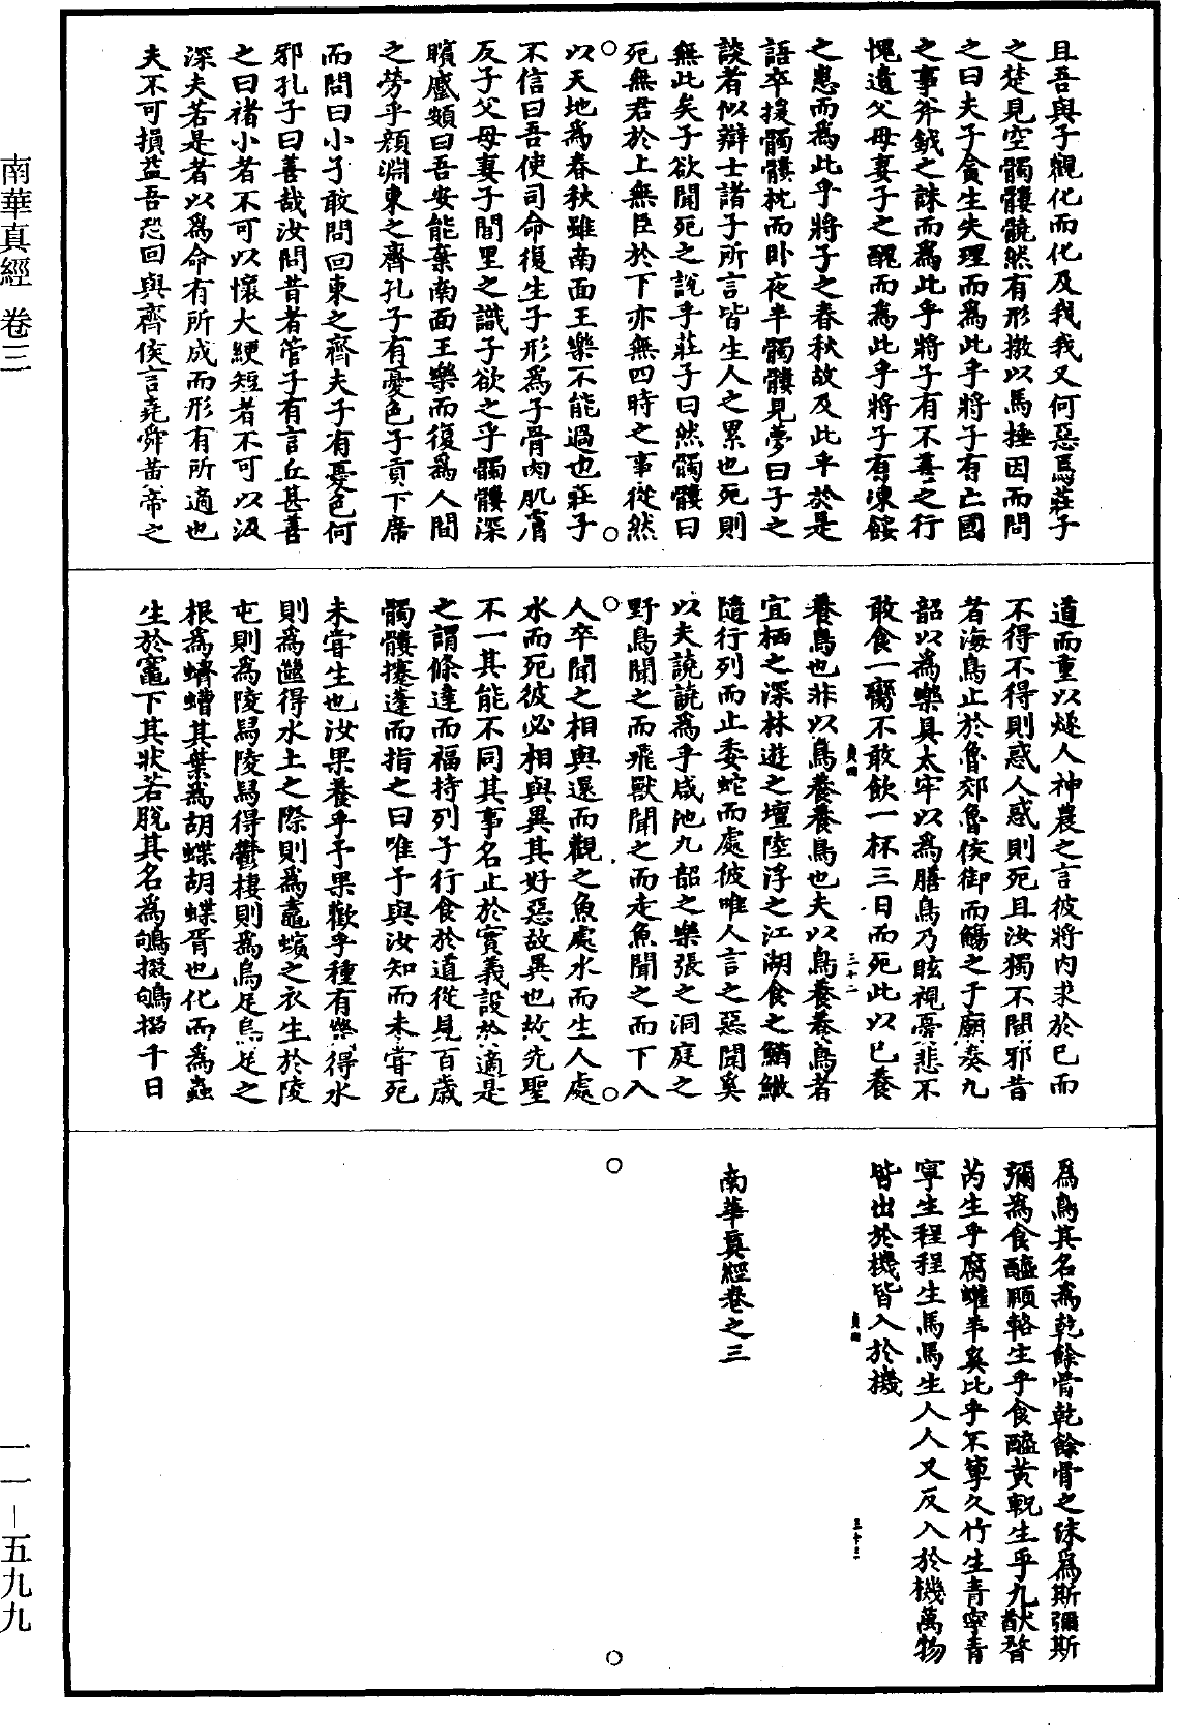 且吾與子觀化而化及我我又何惡焉莊子
之楚見空髑髏髐然有形撽以馬捶因而問
之曰夫子貪生失理而為此乎將子有亡國
之事斧鉞之誅而為此乎將子有不善之行
愧遺父母妻子之醜而為此乎將子有凍餒
之患而為此乎將子之春秋故及此乎於是
語卒援髑髏枕而卧夜半髑髏見夢曰子之
談者似辯士諸子所言皆生人之累也死則
無此矣子欲聞死之說乎莊子曰然髑髏曰
死無君於上無臣於下亦無四時之事從然
以天地為春秋雖南面王樂不能過也莊子
不信曰吾使司命復生子形為子骨肉肌膚
反子父母妻子閭里之識子欲之乎髑髏深
矉蹙頞曰吾安能棄南面王樂而復為人間
之勞乎顏淵東之齊孔子有憂色子貢下席
而問曰小子敢問回東之齊夫子有憂色何
邪孔子曰善哉汝問昔者管子有言丘甚善
之曰褚小者不可以懷大綆短者不可以汲
深夫若是者以為命有所成而形有所適也
夫不可損益吾恐回與齊侯言堯舜黃帝之
道而重以燧人神農之言彼將內求於己而
不得不得則惑人惑則死且汝獨不聞邪昔
者海鳥止於魯郊魯侯御而觴之于廟奏九
韶以為樂具太牢以為膳鳥乃眩視憂悲不
敢食一臠不敢飲一杯三日而死此以己養
養鳥也非以鳥養養鳥也夫以鳥養養鳥者
宜栖之深林遊之壇陸浮之江湖食之鰌鰷
隨行列而止委蛇而處彼唯人言之惡聞奚
以夫譊譊為乎咸池九韶之樂張之洞庭之
野鳥聞之而飛獸聞之而走魚聞之而下入
人卒聞之相與還而觀之魚處水而生人處
水而死彼必相與異其好惡故異也故先聖
不一其能不同其事名止於實義設於適是
之謂條達而福持列子行食於道從見百歲
髑髏攓蓬而指之曰唯予與汝知而未嘗死
未嘗生也汝果養乎予果歡乎種有幾得水
則為㡭得水土之際則為鼃蠙之衣生於陵
屯則為陵舄陵舄得鬱棲則為烏足烏足之
根為蠐螬其葉為胡蝶胡蝶胥也化而為蟲
生於竈下其狀若脫其名為鴝掇鴝掇千日
為鳥其名為乾餘骨乾餘骨之沫為斯彌斯
彌為食醯頤輅生乎食醯黃軦生乎九猷瞀
芮生乎腐蠸羊奚比乎不箰久竹生青寧青
寧生程程生馬馬生人人又反入於機萬物
皆出於機皆入於機
南華真經卷之三
貞四
三十二
貞四
三十三
南華真經 卷三
一一－五九九